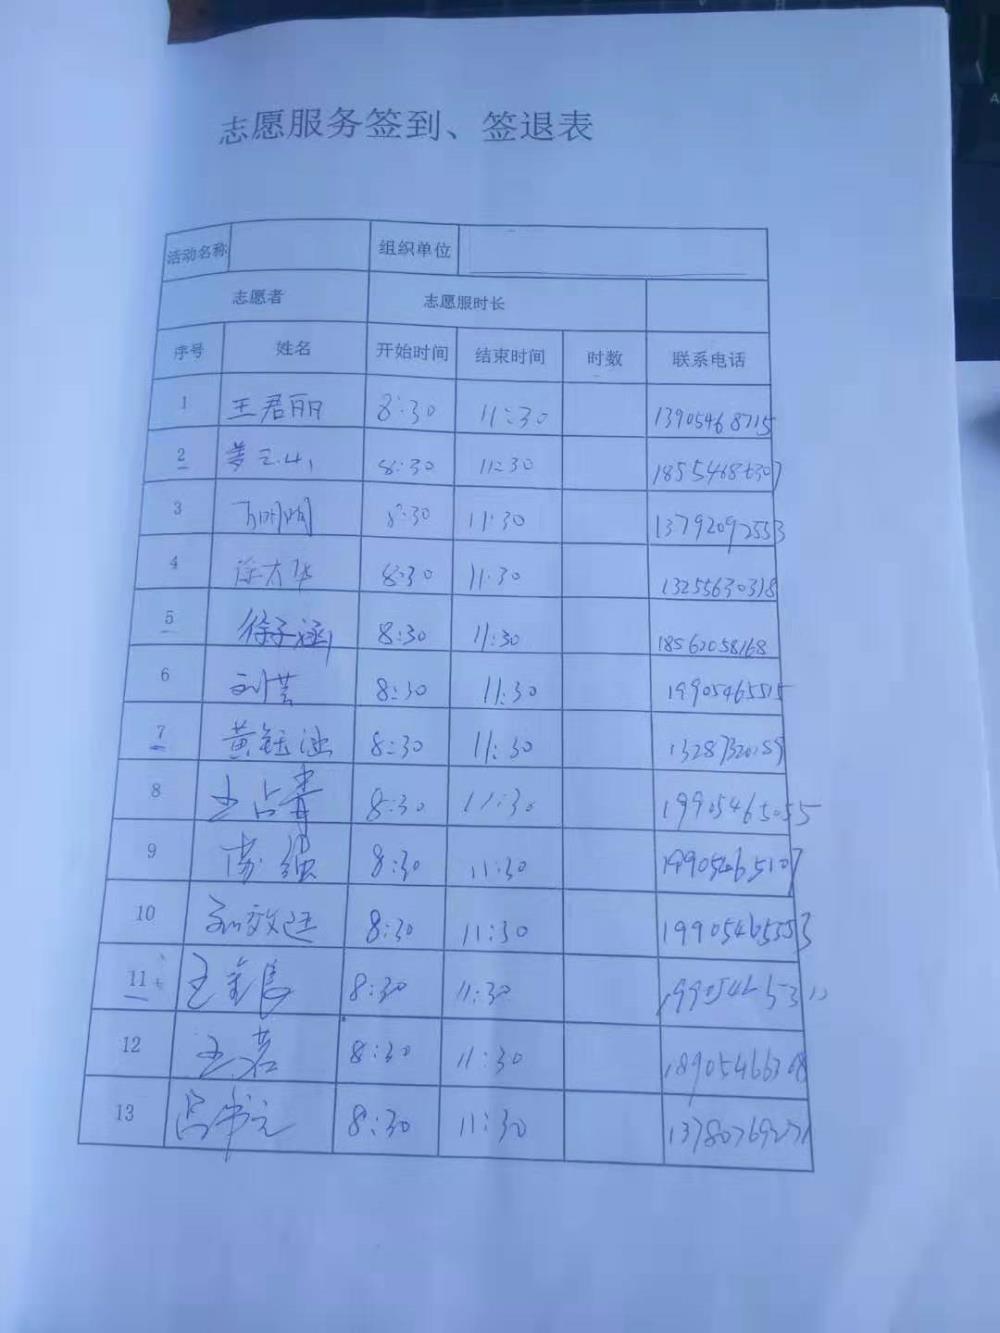 志愿服务签到、签退表
活动名称 组织单位
志愿者 志愿服时长
序号 姓名 开始时间 结束时间 时数 联系电话
1 王君丽 8:30 11:30 13905468715
2 8:30 11:30
3 8:30 11:30 13792092553
4 徐大华 8:30 11:30 13255630318
5 徐子涵 8:30 11:30 18562058168
6 刘芸 8:30 11:30 19905465515
7 黄钰 8:30 11:30
8 王占青 8:30 11:30 19905465055
9 8:30 11:30 19905465107
10 孙效廷 8:30 11:30 19905465553
11 王金良 8:30 11:30
12 王茗 8:30 11:30 18905466308
13 吕书元 8:30 11:30 13780769271